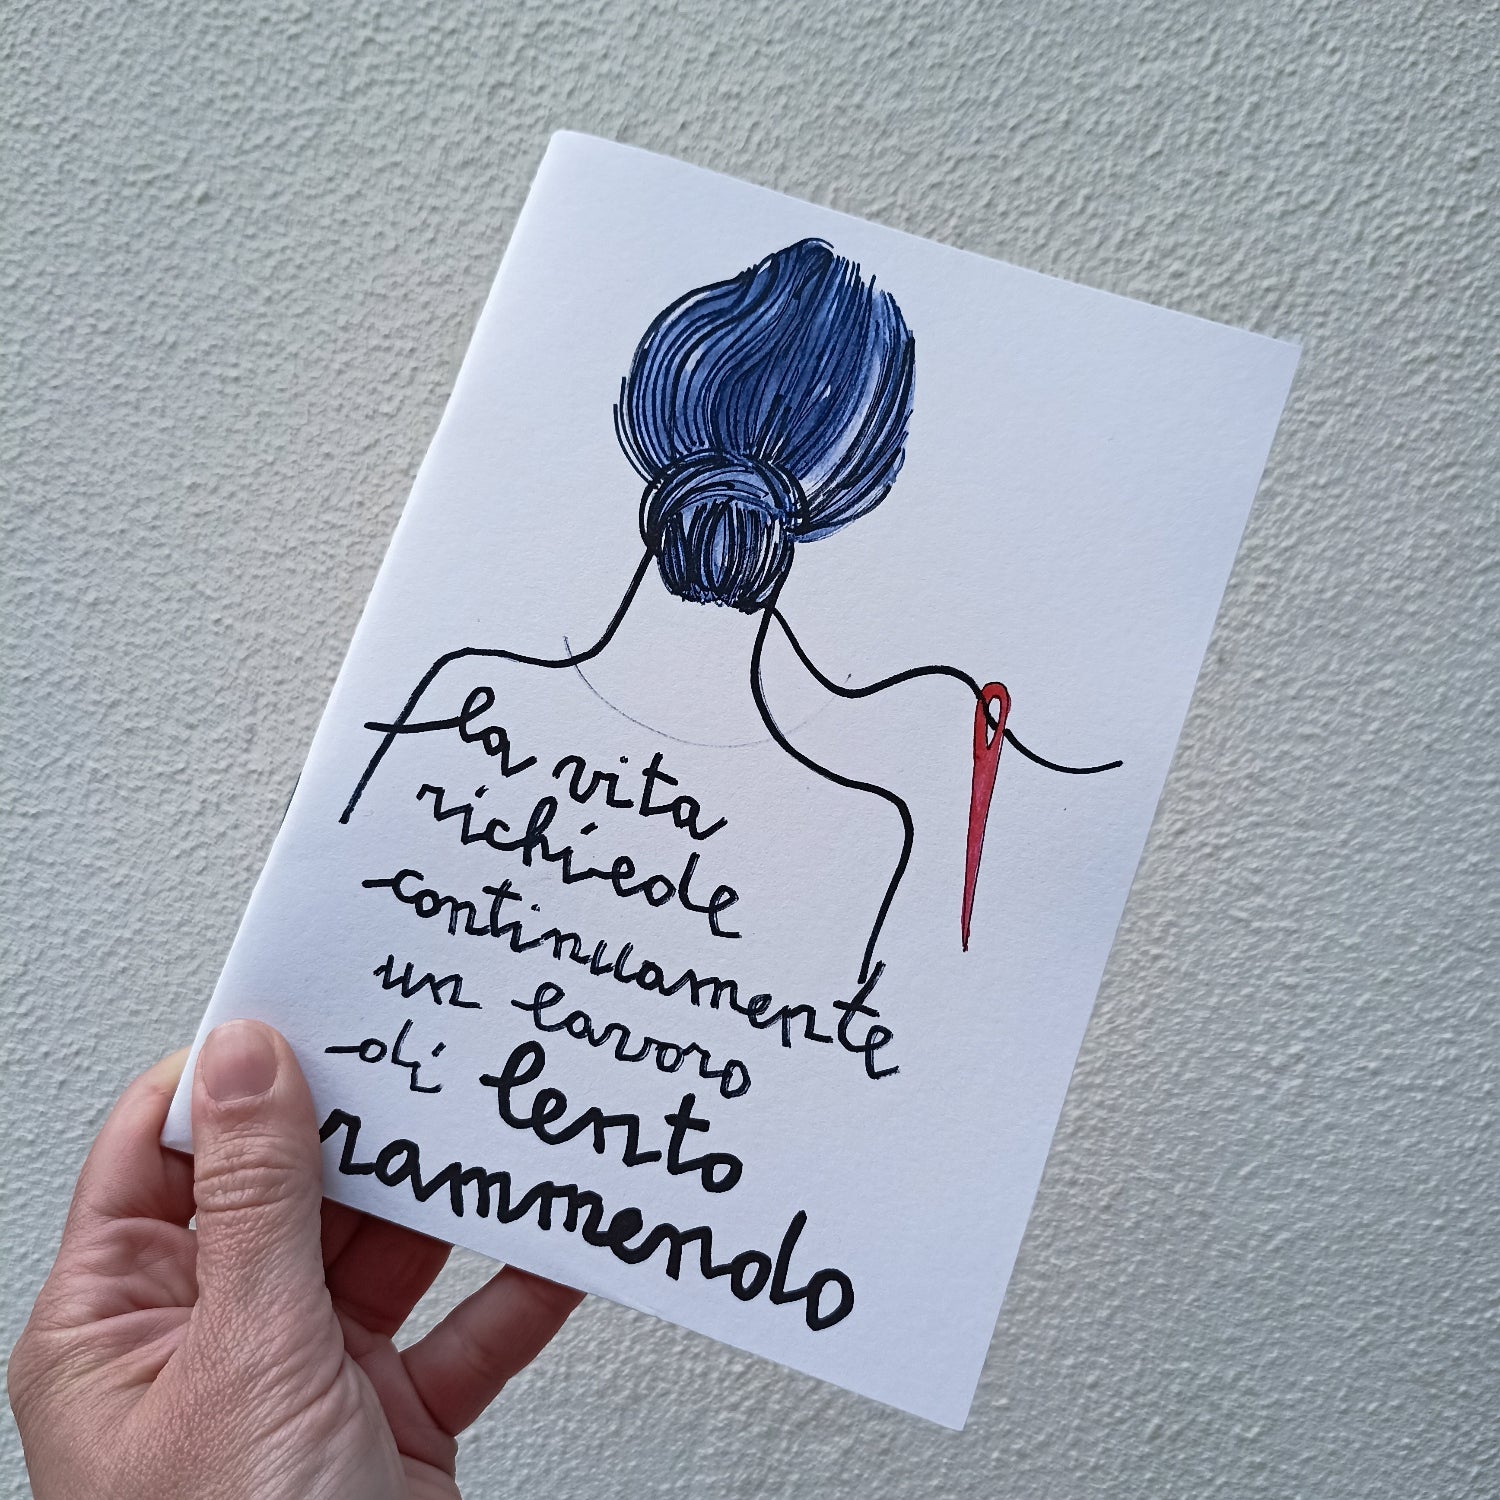 la vita
richiede
continuamente
un lavoro
di lento
rammendo